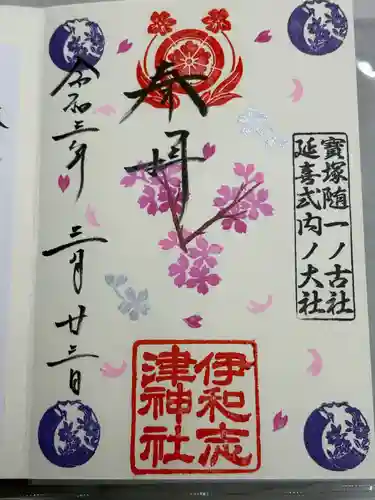 寶塚随一ノ古社
延喜式内ノ大社
奉拝
伊和志
津神社
令和三年
三月廿三日